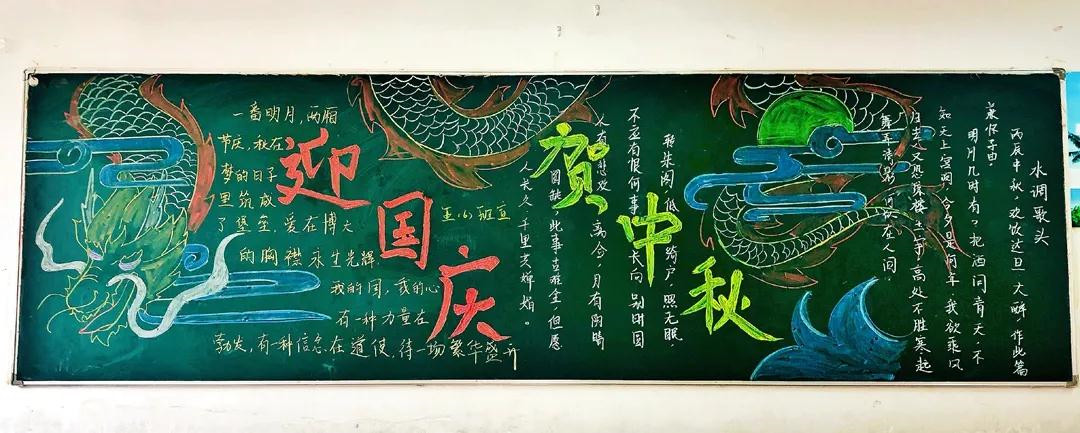 迎国庆
贺中秋
一番明月，两厢
节庆，秋在
梦的日子
里筑成
了堡垒，爱在博大
的胸襟永生光辉
我的国，我的心
有一种力量在
勃发，有一种信念在道使，待一场繁华盛开
水调歌头
丙辰中秋，欢饮达旦，大醉，作此篇
兼怀子由
明月几时有？把酒问青天，不
知天上宫阙，今夕是何年，我欲乘风
归去，又恐琼楼玉宇，高处不胜寒，起
舞弄清影，何似在人间
转朱阁，低绮户，照无眠，
不应有恨，何事长向别时圆
人有悲欢离合，月有阴晴
圆缺，此事古难全，但愿
人长久，千里共婵娟。